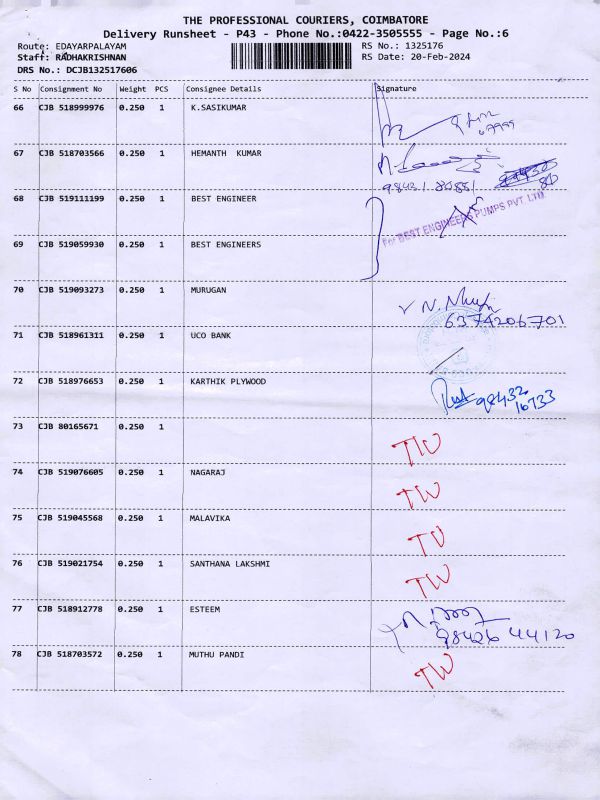 THE PROFESSIONAL COURIERS, COIMBATORE
Delivery Runsheet - P43 - Phone No.:0422-3505555 - Page No.:6
Route: EDAYARPALAYAM RS No.: 1325176
Staff: RADHAKRISHNAN RS Date: 20-Feb-2024
DRS No.: DCJB132517606
S No Consignment No Weight PCS Consignee Details Signature
66 CJB 518999976 0.250 1 K.SASIKUMAR
67 CJB 518703566 0.250 1 HEMANTH KUMAR
98431 80851
68 CJB 519111199 0.250 1 BEST ENGINEER
For BEST ENGINEERS PUMPS PVT. LTD.
69 CJB 519059930 0.250 1 BEST ENGINEERS
70 CJB 519093273 0.250 1 MURUGAN
6374206701
71 CJB 518961311 0.250 1 UCO BANK
72 CJB 518976653 0.250 1 KARTHIK PLYWOOD
98432
16733
73 CJB 80165671 0.250 1
74 CJB 519076605 0.250 1 NAGARAJ
75 CJB 519045568 0.250 1 MALAVIKA
76 CJB 519021754 0.250 1 SANTHANA LAKSHMI
77 CJB 518912778 0.250 1 ESTEEM
98426 44120
78 CJB 518703572 0.250 1 MUTHU PANDI